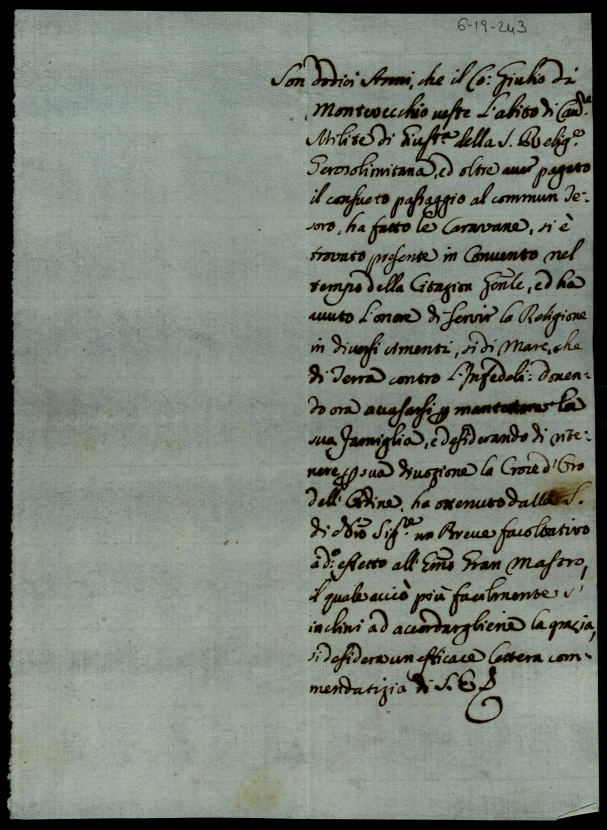 6-19-243
Son dodici Anni, che il Co: Giulio di
Montevecchio veste l'abito di Cav.re
Milite di Giust.a della S. Relig.e
Gerosolimitana, ed oltre aver pagato
il consueto passaggio al commun Te-
soro, ha fatto le Caravane, si è
trovato presente in Convento nel
tempo della Citazion Gnle, ed ha
avuto l'onore di servir la Religione
in diversi cimenti, sì di Mare, che
di Terra contro l'Infedeli: doven-
do ora accasarsi p mantener la
sua Famiglia, e desiderando di rite-
nere p sua divozione la Croce d'Oro
dell'Ordine, ha ottenuto dalla S.
di Nro Sig.re un Breve facoltativo
ad effetto all'Emo Gran Mastro,
il quale acciò più facilmente s'
inclini ad accordargliene la grazia,
si desidera un efficace lettera com-
mendatizia di S. E.